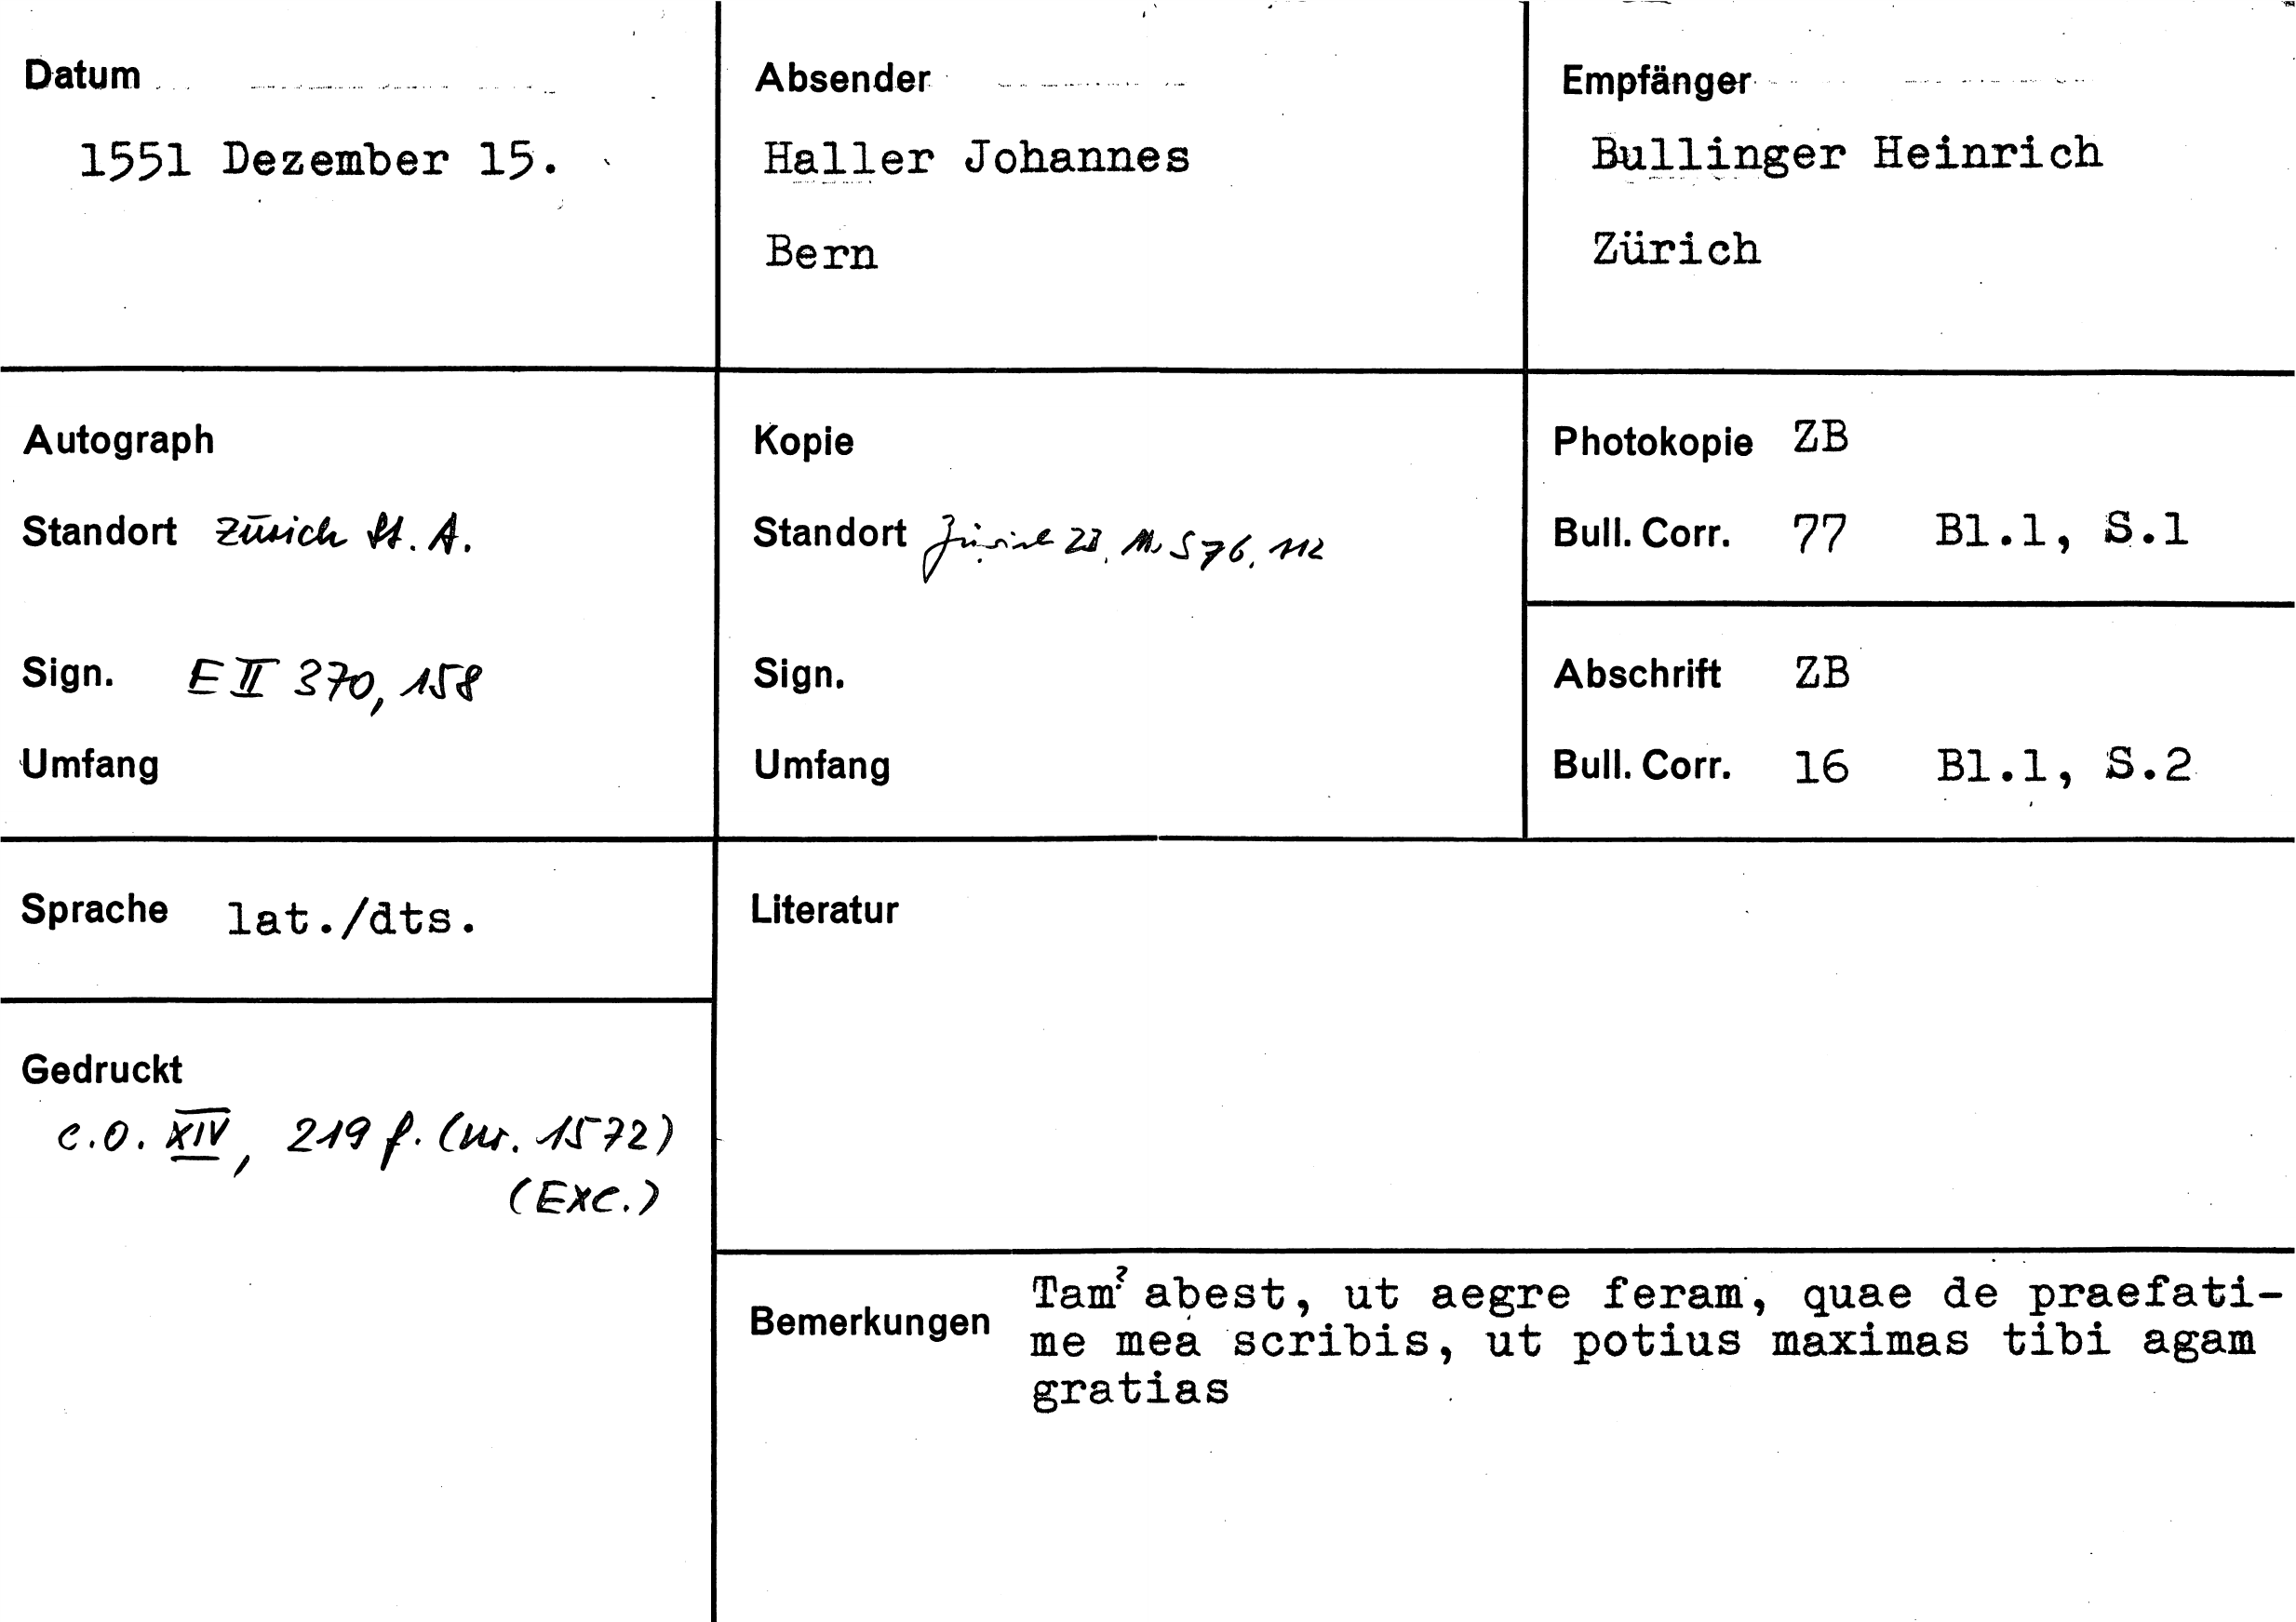 Datum
1551 Dezember 15.
Absender
Haller Johannes
Bern
Empfänger
Bullinger Heinrich
Zürich
Autograph
Standort Zürich St. A.
Sign. E II 370, 158
Umfang
Kopie
Standort Zürich ZB, Ms S 76, 112
Sign.
Umfang
Photokopie ZB
Bull. Corr. 77 Bl.1, S.1
Abschrift ZB
Bull. Corr. 16 Bl.1, S.2
Sprache lat./dts.
Literatur
Gedruckt
C.O. XIV, 219 f. (Nr. 1572)
(Exc.)
Bemerkungen
Tam? abest, ut aegre feram, quae de praefati-
me mea scribis, ut potius maximas tibi agam
gratias